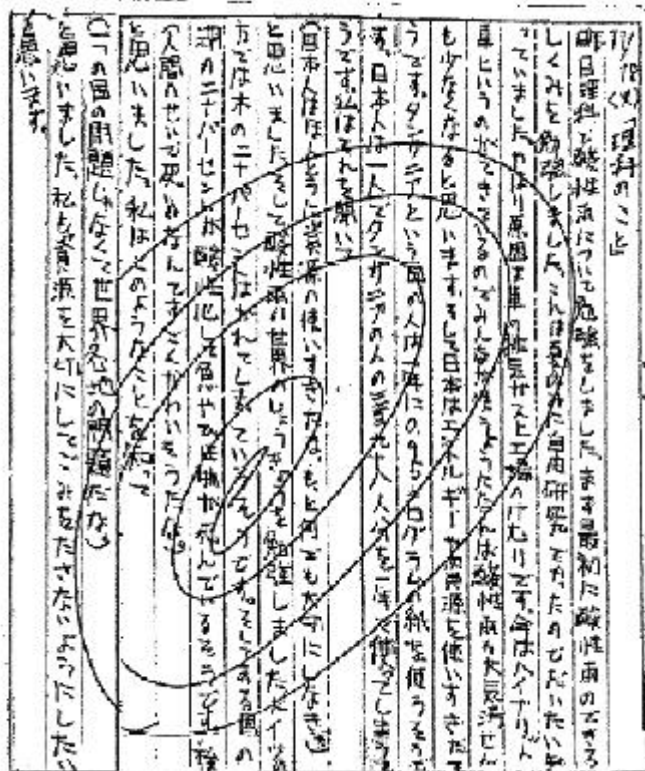 11/18(火)「理科のこと」
昨日理科で酸性雨について勉強をしました。まず最初に酸性雨のできる
しくみを勉強しました。これは夏の自由研究でやったのでだいたい知
っていました。やはり原因は車の排気ガスと工場のけむりです。今はハイブリット
車というのができているのでみんなが使うようになれば酸性雨や大気汚せん
も少なくなると思います。そして日本はエネルギーや資源を使いすぎだそ
うです。タンザニアという国の人は一年に キログラムの紙を使うそうで
す。日本人は一人でタンザニアの人の 人分を一年で使ってしまうそ
うです。私はそれを聞いて
(日本人はほんとうに資源の使いすぎだな。もっと何でも大切にしなきゃ。)
と思いました。そして酸性雨の世界のひょうきょうを勉強しました。ドイツの
方では木の二十パーセントはかれてしまっているそうです。そしてある国の
湖の二十パーセントが酸性化して魚や生物が死んでいるそうです。私
(人間のせいで死ぬなんてすごくかわいそうだな。)
と思いました。私はこのようなことを知って
(一つの国の問題じゃなくて世界各地の問題だな。)
と思いました。私も資源を大切にしてごみをださないようにしたい
と思います。